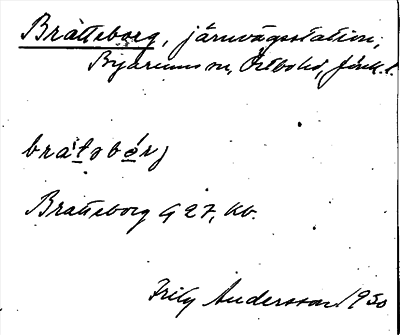 Bratteborg, järnvägsstation,
Byarums sn, Östbo hd, Jönk. l.
bratobérj
Bratteborg G 27, kb.
Fritz Andersson 1930